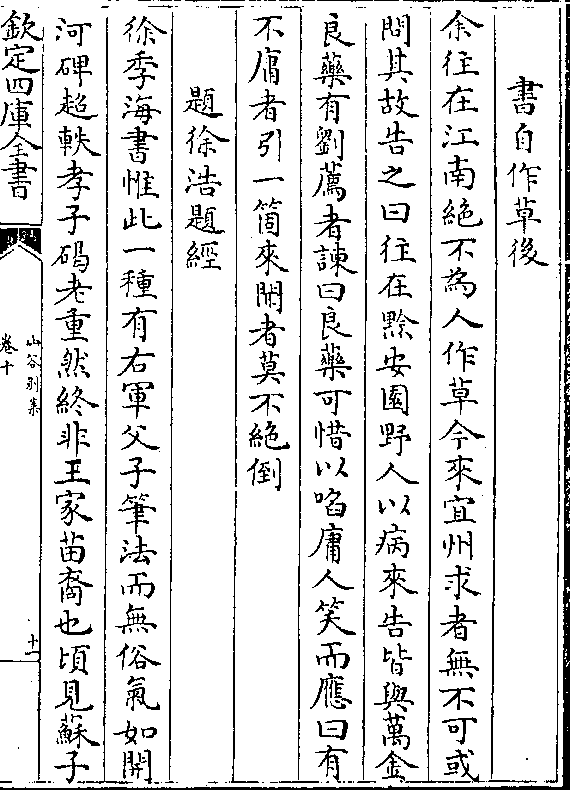 書自作草後
余往在江南絶不為人作草今來宜州求者無不可或
問其故告之曰往在黟安園野人以病來告皆與萬金
良藥有劉薦者諫曰良藥可惜以啗庸人笑而應曰有
不庸者引一箇來聞者莫不絶倒
題徐浩題經
徐季海書惟此一種有右軍父子筆法而無俗氣如開
河碑超軼孝子碣老重然終非王家苗裔也頃見蘇子
欽定四庫全書
山谷别集
卷十
十一